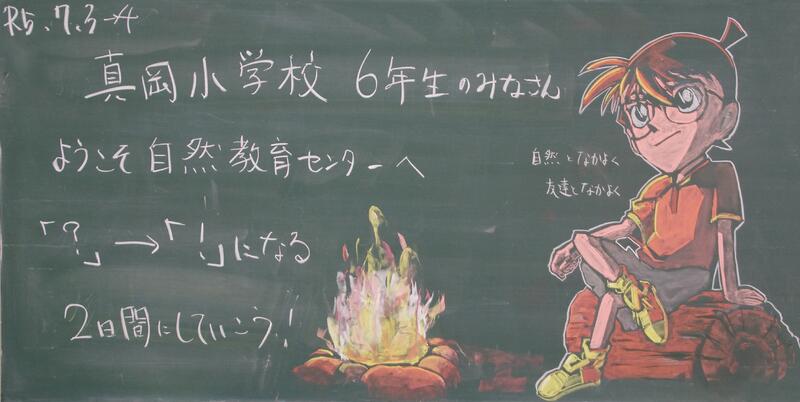 R5.7.3-4
真岡小学校 6年生のみなさん
ようこそ自然教育センターへ
「?」→「!」になる
2日間にしていこう!
自然となかよく
友達となかよく